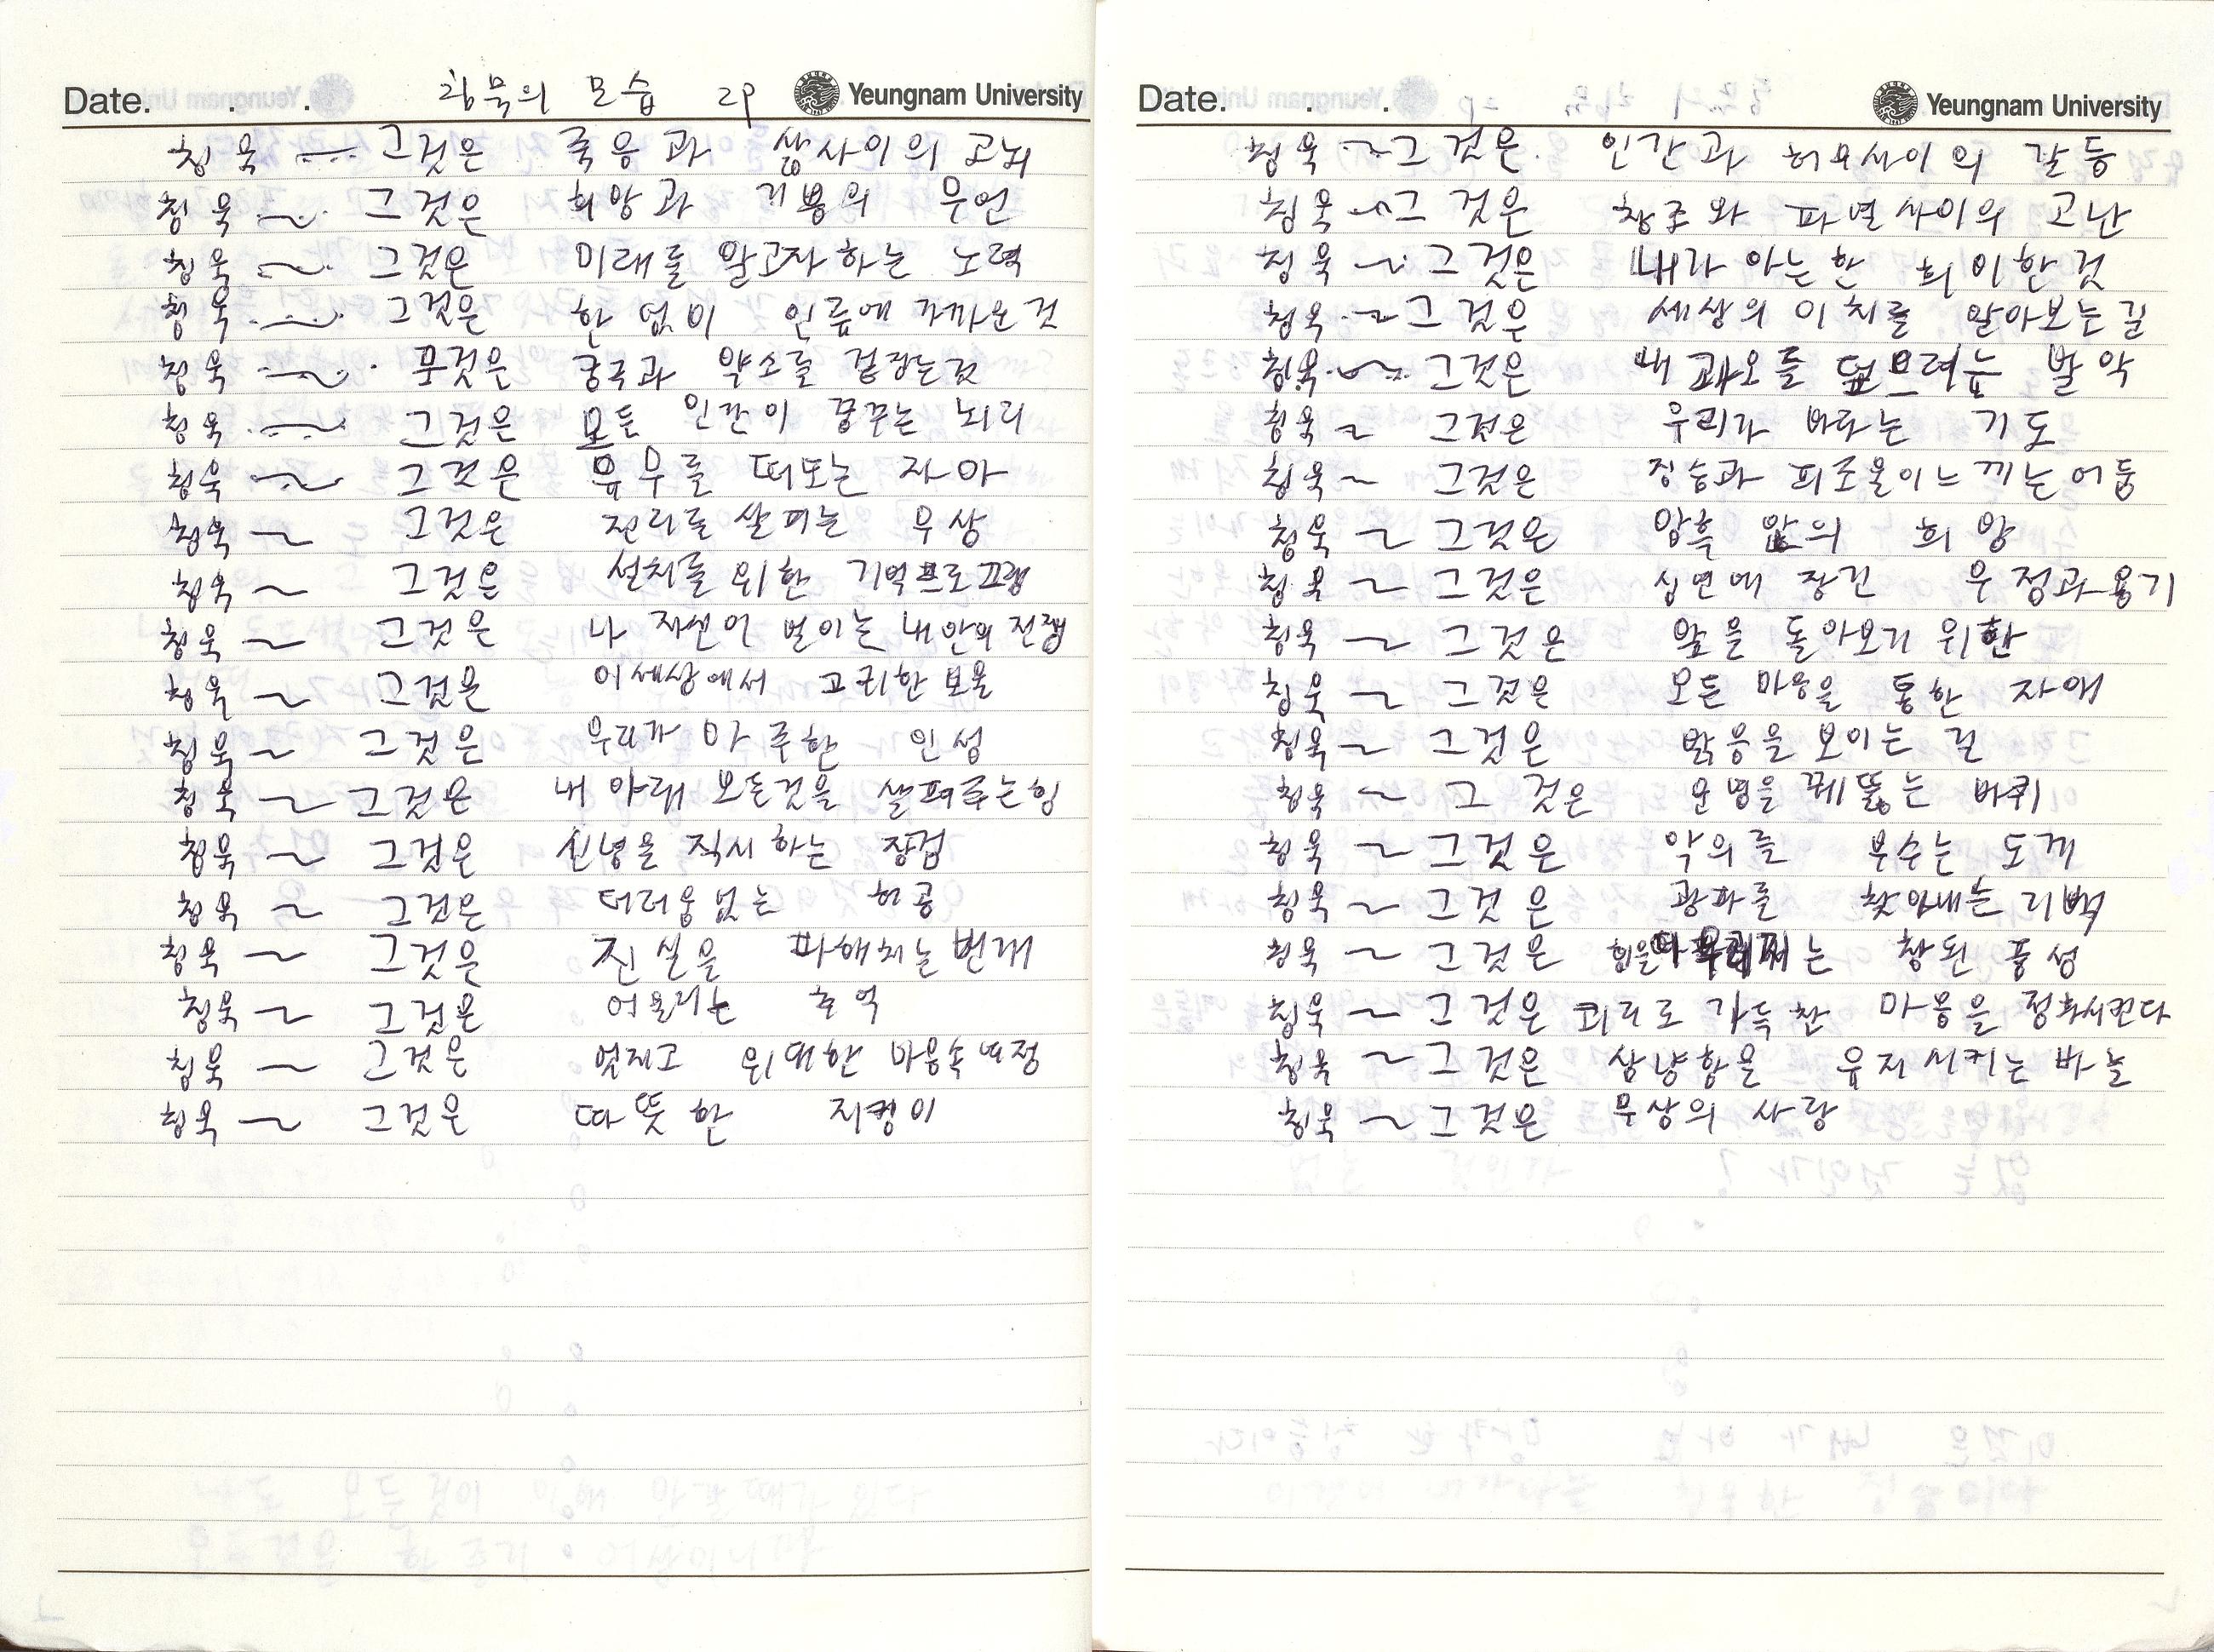 Date. . . 침묵의 모습 2P Yeungnam University
침묵 ~ 그것은 죽음과 삶사이의 고뇌
침묵 ~ 그것은 희망과 무언
침묵 ~ 그것은 미래를 알고자하는 노력
침묵 ~ 그것은 한 없이 인류에 가까운 것
침묵 ~ 그것은 궁극과 약소를
침묵 ~ 그것은 모든 인간이 꿈꾸는 뇌리
침묵 ~ 그것은 유무를 떠도는 자아
침묵 ~ 그것은 진리를 살피는 우상
침묵 ~ 그것은 설치를 위한 기억프로그램
침묵 ~ 그것은 나 자신이 벌이는 내안의 전쟁
침묵 ~ 그것은 이세상에서 고귀한 보물
침묵 ~ 그것은 인성
침묵 ~ 그것은 내 아래 모든것을 살펴주는힘
침묵 ~ 그것은 신념을 직시하는 장검
침묵 ~ 그것은 더러움없는 허공
침묵 ~ 그것은 진실을 파헤치는 번개
침묵 ~ 그것은 추억
침묵 ~ 그것은 위대한 마음속
침묵 ~ 그것은 따뜻한 지팡이
Date. . . Yeungnam University
침묵 ~ 그것은 인간과 갈등
침묵 ~ 그것은 창조와 파멸사이의 고난
침묵 ~ 그것은 내가 아는한 희이한것
침묵 ~ 그것은 세상의 이치를 알아보는길
침묵 ~ 그것은 내 과오를 발악
침묵 ~ 그것은 우리가 바라는 기도
침묵 ~ 그것은 짐승과 피조물이느끼는어둠
침묵 ~ 그것은 암흑 앞의 희망
침묵 ~ 그것은 심연에 잠긴 우정과용기
침묵 ~ 그것은 앞을 돌아보기 위한
침묵 ~ 그것은 모든 마음을 통한 자애
침묵 ~ 그것은 밝음을 보이는 길
침묵 ~ 그것은 운명을 꿰뚫는 바퀴
침묵 ~ 그것은 악의를 부수는 도끼
침묵 ~ 그것은 광파를 찾아내는
침묵 ~ 그것은 참된 품성
침묵 ~ 그것은 괴리로 가득찬 마음을 정화시킨다
침묵 ~ 그것은 삼냥항을 유지시키는 바늘
침묵 ~ 그것은 무상의 사랑